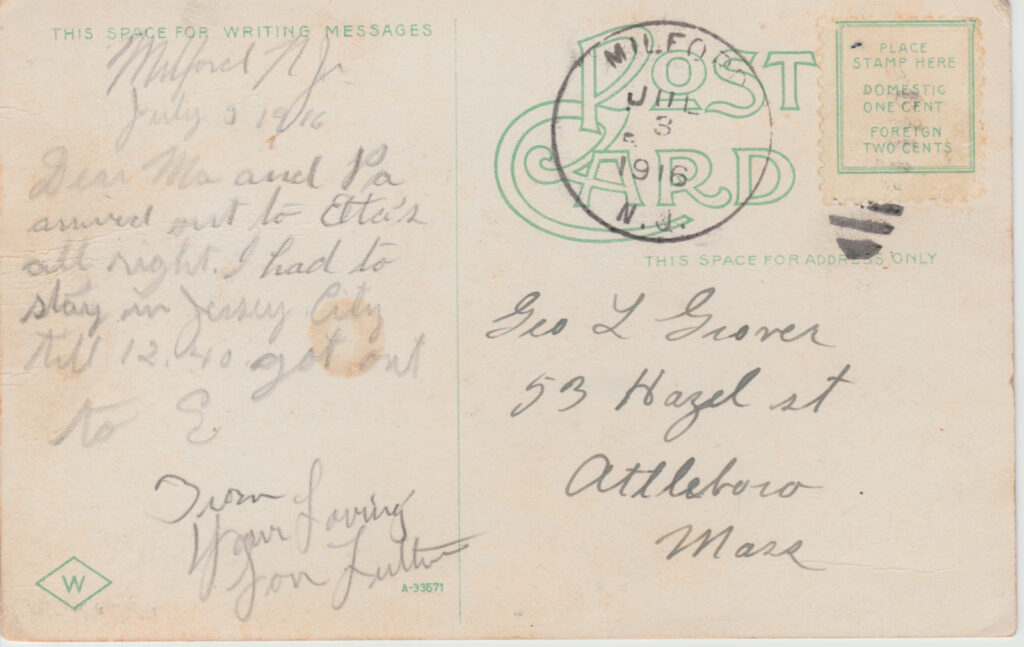 THIS SPACE FOR WRITING MESSAGES
Milford N J.
July 3 1916
Dear Ma and Pa
arrived out to Etta's
all right. I had to
stay in Jersey City
till 12.40 got out
to E
From
Your Loving
Son
W
A-33571
POST
CARD
MILFORD
JUL
3
1916
N.J.
PLACE
STAMP HERE
DOMESTIC
ONE CENT
FOREIGN
TWO CENTS
THIS SPACE FOR ADDRESS ONLY
Geo L Grover
53 Hazel st
Attleboro
Mass